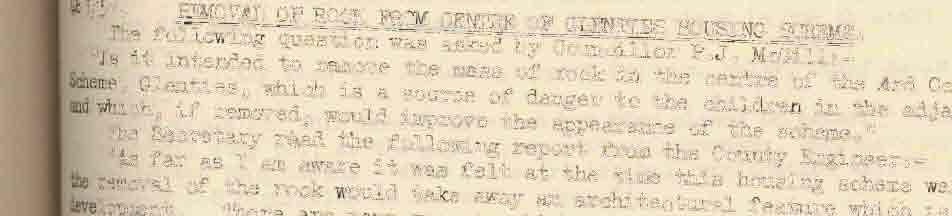 REMOVAL OF ROCK FROM CENTRE OF GLENTIES HOUSING SCHEME.
The following question was asked by Councillor P.J. McGill:-
"Is it intended to remove the mass of rock in the centre of the Ard Co
Scheme, Glenties, which is a source of danger to the children in the adja
and which, if removed, would improve the appearance of the scheme."
The Secretary read the following report from the County Engineer:-
"As far as I am aware it was felt at the time this housing scheme wa
the removal of the rock would take away an architectural feature which
development. There are